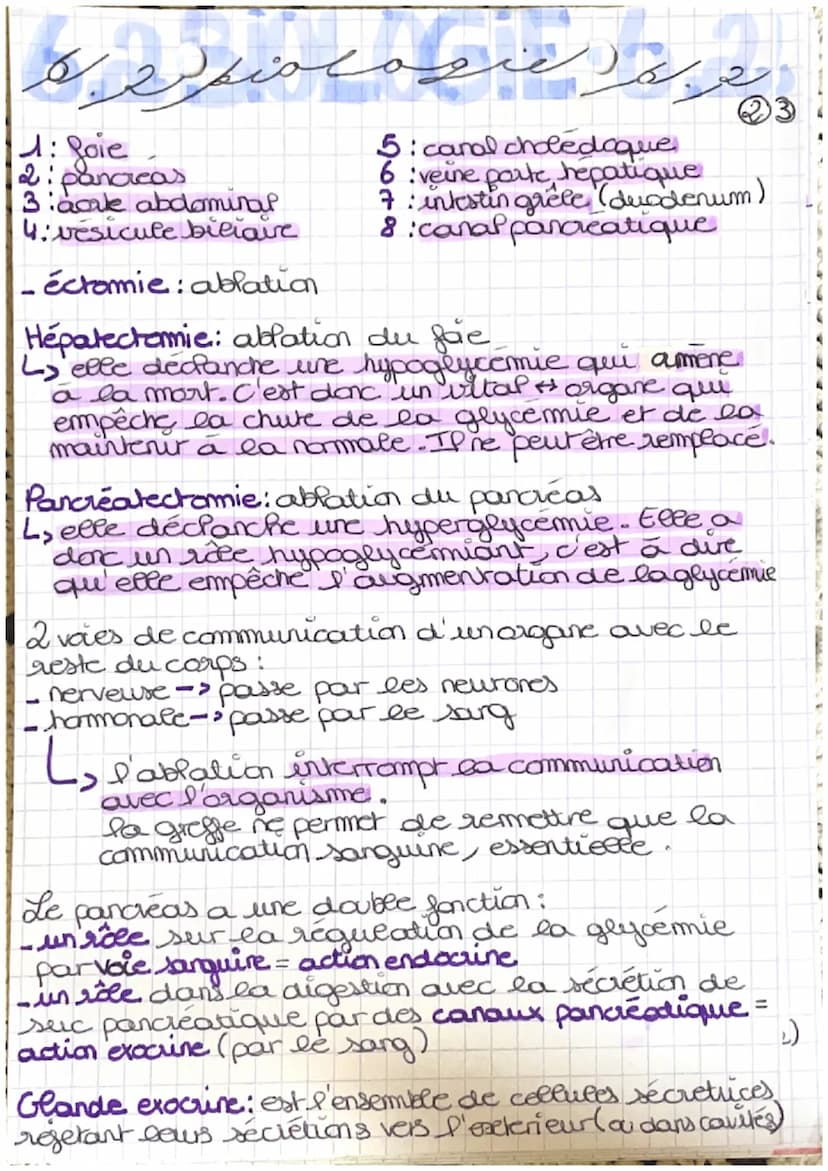 6.2 BIOLOGIE 6.2
6.2) biologie) 6.2
② 3
1 : foie
2 : pancréas
3 : aorte abdominal
4 : vésicule biliaire
5 : canal cholédoque
6 : veine porte hépatique
7 : intestin grêle (duodenum)
8 : canal pancréatique
- éctomie : ablation
Hépatectomie : ablation du foie
↳ elle déclanche une hypoglycémie qui amène
à la mort. C'est donc un vital ↔ organe qui
empêche la chute de la glycémie et de la
maintenir à la normale. Il ne peut être remplacé.
Pancréatectomie : ablation du pancréas
↳ elle déclanche une hyperglycémie. Elle a
donc un rôle hypoglycémiant, c'est à dire
qu'elle empêche l'augmentation de la glycémie
2 voies de communication d'un organe avec le
reste du corps :
- nerveuse -> passe par les neurones
- hormonale -> passe par le sang
↳ l'ablation interrompt la communication
avec l'organisme.
la greffe ne permet de remettre que la
communication sanguine, essentielle.
Le pancréas a une double fonction :
- un rôle sur la régulation de la glycémie
par voie sanguine = action endocrine
- un rôle dans la digestion avec la sécrétion de
suc pancréatique par des canaux pancréatique =
action exocrine (par le sang)
Glande exocrine : est l'ensemble de cellules sécretrices
rejetant leurs sécrétions vers l'exterieur (ou dans cavités)